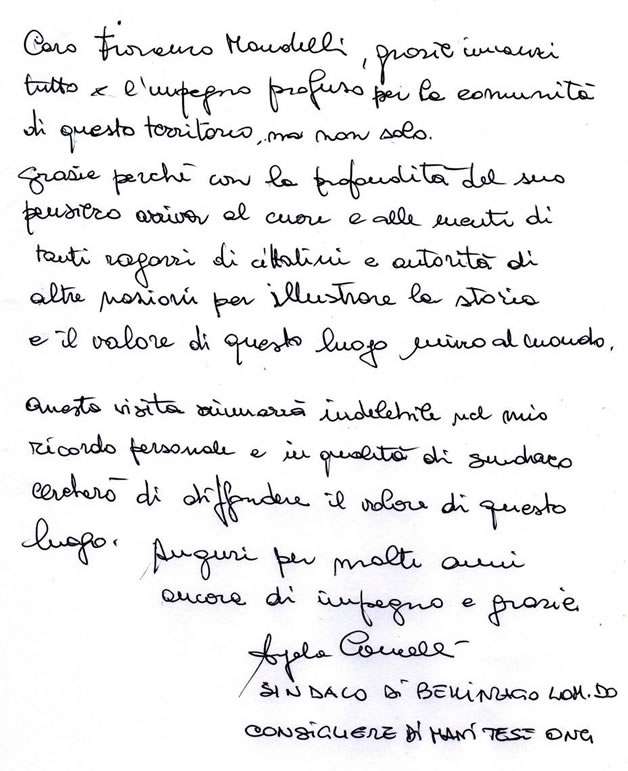 Caro Fiorenzo Mandelli, grazie innanzi
tutto x l'impegno profuso per la comunità
di questo territorio, ma non solo.
Grazie perché con la profondità del suo
pensiero arriva al cuore e alle menti di
tanti ragazzi di cittadini e autorità di
altre nazioni per illustrare la storia
e il valore di questo luogo unico al mondo.
Questa visita rimarrà indelebile nel mio
ricordo personale e in qualità di sindaco
cercherò di diffondere il valore di questo
luogo. Auguri per molti anni
ancora di impegno e grazie
Angela
SINDACO DI BELLINZAGO LOM.DO
CONSIGLIERE DI MANI TESE ONG